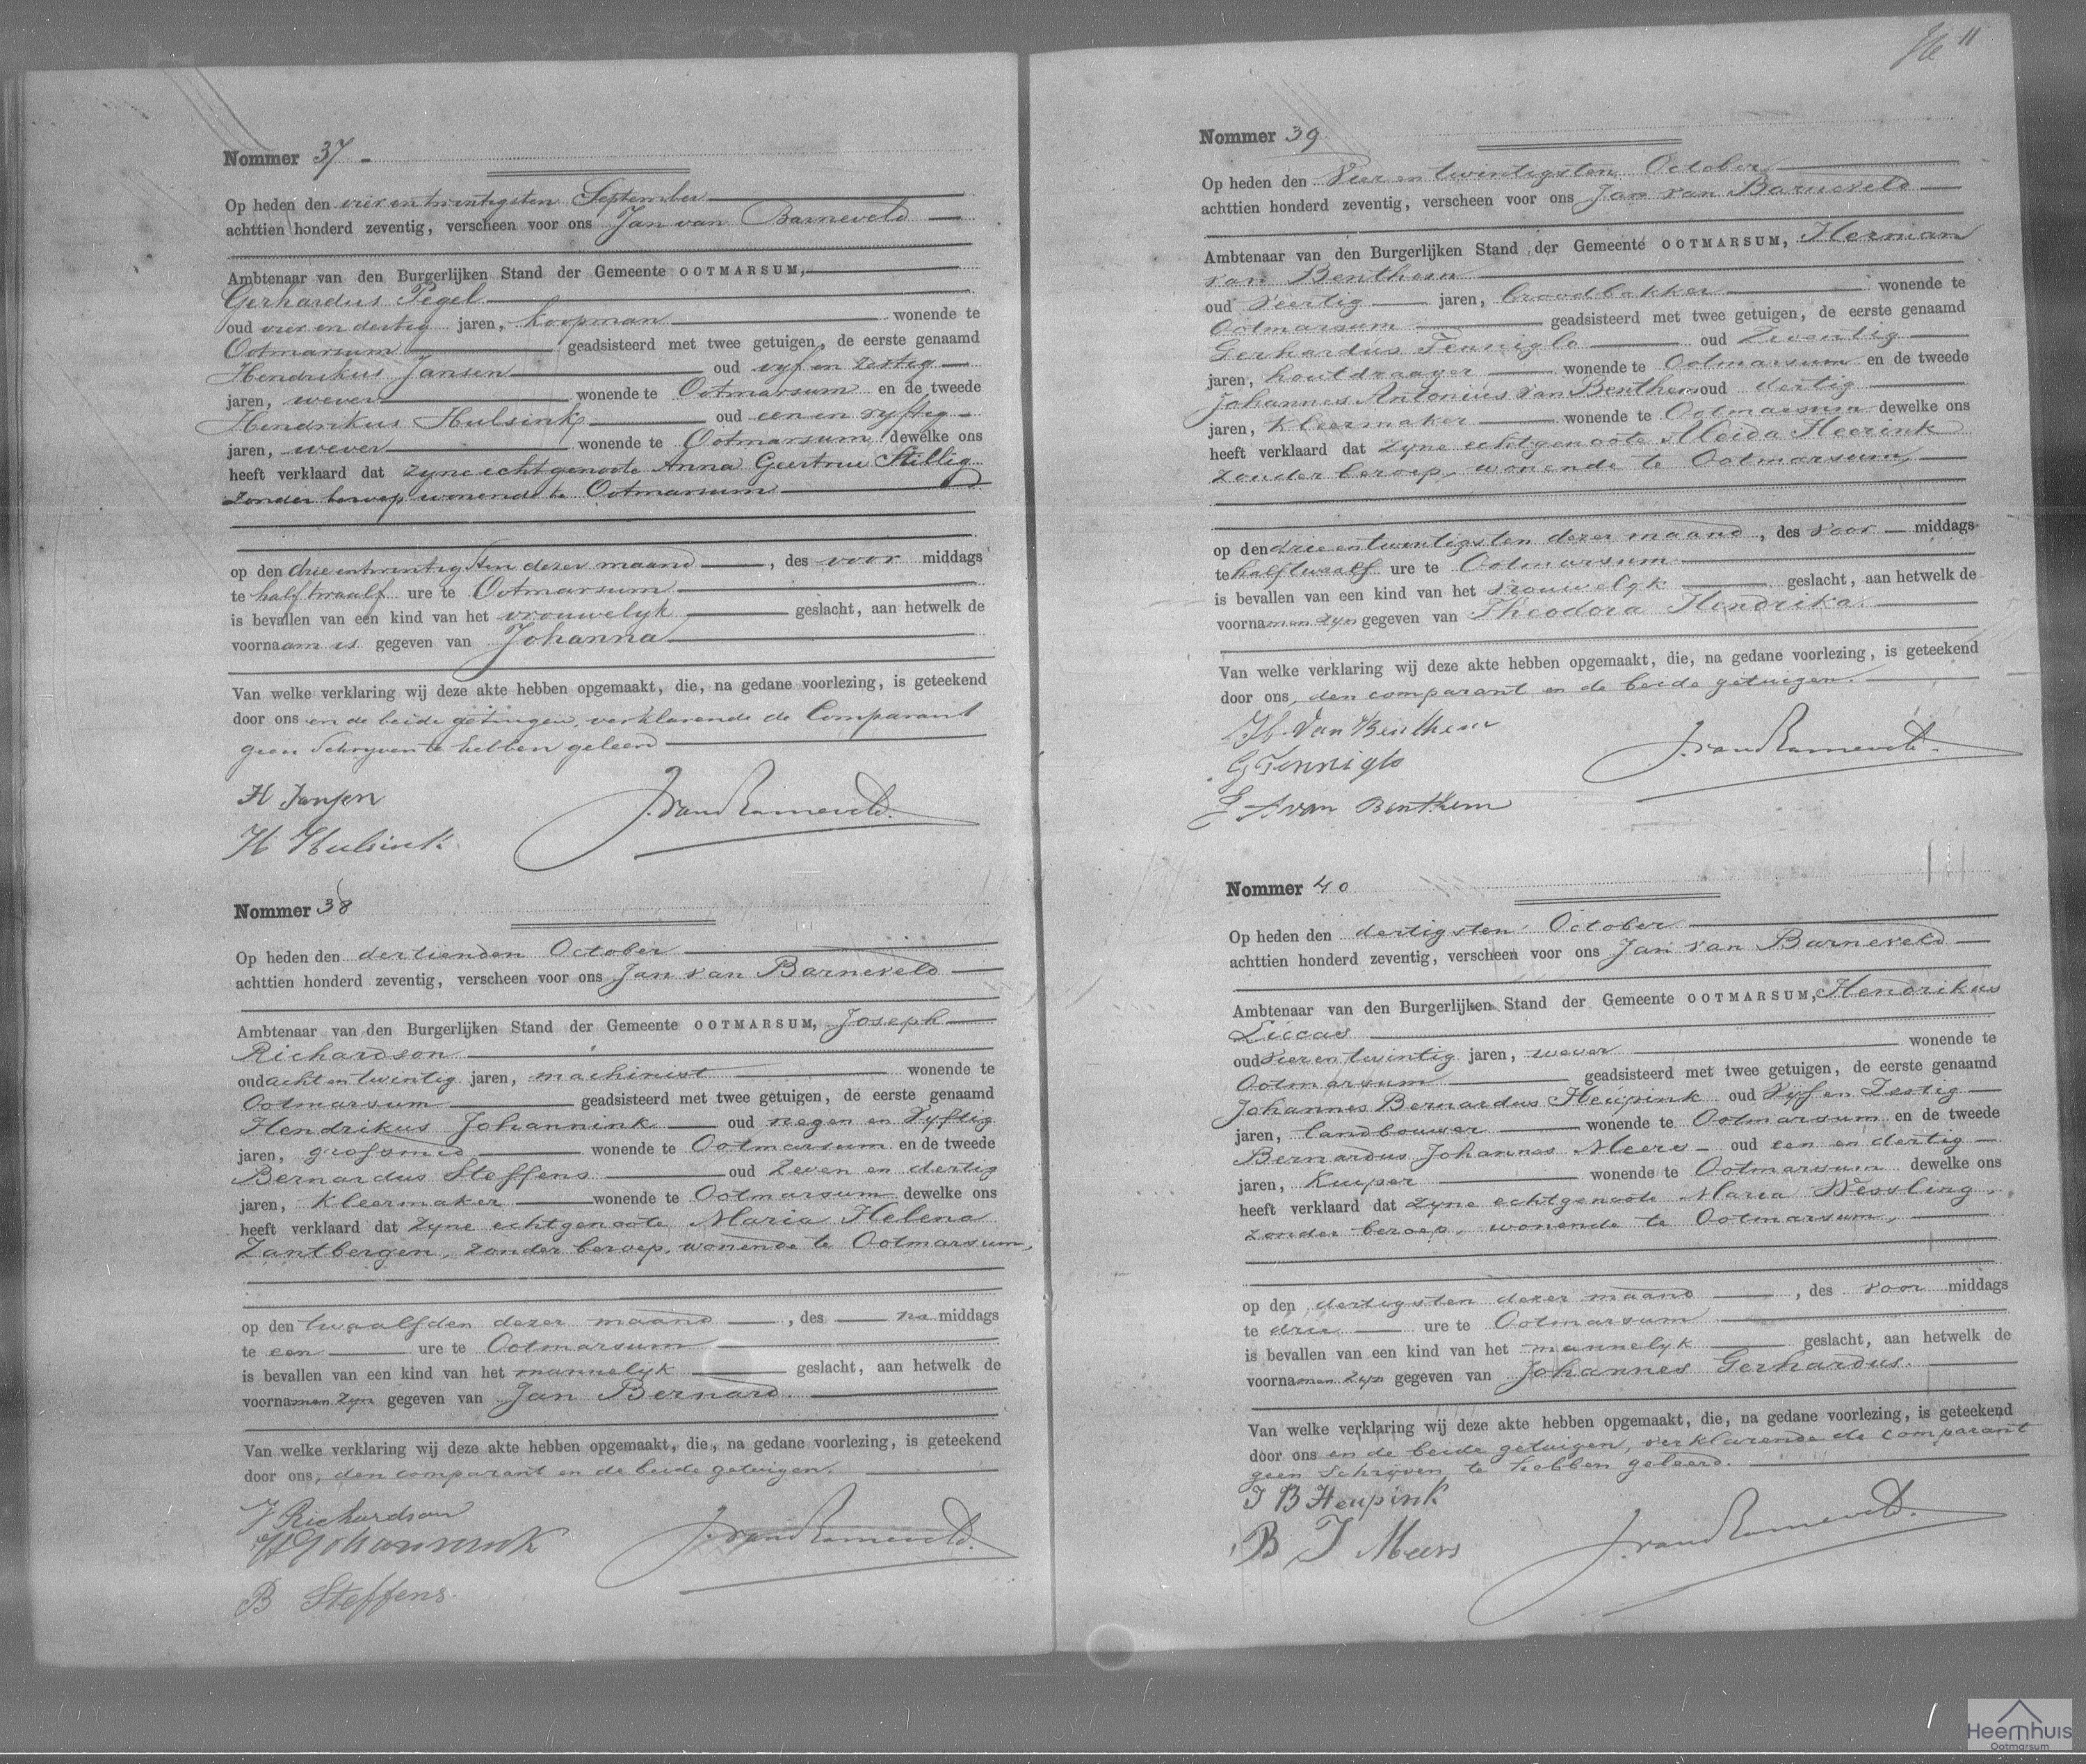 Nommer 37
Op heden den vier en twintigsten September
achttien honderd zeventig, verscheen voor ons Jan van Barneveld
Ambtenaar van den Burgerlijken Stand der Gemeente OOTMARSUM,
Gerhardus Pegel
oud vier en dertig jaren, koopman wonende te
Ootmarsum geadsisteerd met twee getuigen, de eerste genaamd
Hendrikus Jansen oud vyf en zestig
jaren, wever wonende te Ootmarsum en de tweede
Hendrikus Hulsink oud een en vyftig
jaren, wever wonende te Ootmarsum dewelke ons
heeft verklaard dat zyne echtgenoote Anna Geertrui Stillig
zonder beroep wonende te Ootmarsum
op den drie en twintigsten dezer maand, des voor middags
te half twaalf ure te Ootmarsum
is bevallen van een kind van het vrouwelyk geslacht, aan hetwelk de
voornaam is gegeven van Johanna
Van welke verklaring wij deze akte hebben opgemaakt, die, na gedane voorlezing, is geteekend
door ons en de beide getuigen, verklarende de Comparant
geen Schryven te hebben geleerd
H Jansen
H Hulsink
J. van Barneveld.
Nommer 38
Op heden den dertienden October
achttien honderd zeventig, verscheen voor ons Jan van Barneveld
Ambtenaar van den Burgerlijken Stand der Gemeente OOTMARSUM, Joseph
Richardson
oud acht en twintig jaren, machinist wonende te
Ootmarsum geadsisteerd met twee getuigen, de eerste genaamd
Hendrikus Johannink oud negen en vyftig
jaren, grofsmid wonende te Ootmarsum en de tweede
Bernardus Steffens oud zeven en dertig
jaren, kleermaker wonende te Ootmarsum dewelke ons
heeft verklaard dat zyne echtgenoote Maria Helena
Zantbergen, zonder beroep, wonende te Ootmarsum,
op den twaalfden dezer maand, des na middags
te een ure te Ootmarsum
is bevallen van een kind van het mannelyk geslacht, aan hetwelk de
voornamen zyn gegeven van Jan Bernard.
Van welke verklaring wij deze akte hebben opgemaakt, die, na gedane voorlezing, is geteekend
door ons, den comparant en de beide getuigen.
J Richardson
H Johannink
B Steffens.
J. van Barneveld.
Nommer 39
Op heden den Vier en twintigsten October
achttien honderd zeventig, verscheen voor ons Jan van Barneveld
Ambtenaar van den Burgerlijken Stand der Gemeente OOTMARSUM, Herman
van Benthem
oud veertig jaren, broodbakker wonende te
Ootmarsum geadsisteerd met twee getuigen, de eerste genaamd
Gerhardus Tenniglo oud zeventig
jaren, houtdraayer wonende te Ootmarsum en de tweede
Johannes Antonius van Benthem oud dertig
jaren, kleermaker wonende te Ootmarsum dewelke ons
heeft verklaard dat zyne echtgenoote Aleida Heerink
zonder beroep, wonende te Ootmarsum,
op den drie en twintigsten dezer maand, des voor middags
te half twaalf ure te Ootmarsum
is bevallen van een kind van het vrouwelyk geslacht, aan hetwelk de
voornamen zyn gegeven van Theodora Hendrika.
Van welke verklaring wij deze akte hebben opgemaakt, die, na gedane voorlezing, is geteekend
door ons, den comparant en de beide getuigen.
H. van Benthem
G Tenniglo
A van Benthem
J. van Barneveld.
Nommer 40
Op heden den dertigsten October
achttien honderd zeventig, verscheen voor ons Jan van Barneveld
Ambtenaar van den Burgerlijken Stand der Gemeente OOTMARSUM, Hendrikus
Luccas
oud vier en twintig jaren, wever wonende te
Ootmarsum geadsisteerd met twee getuigen, de eerste genaamd
Johannes Bernardus Heupink oud vyf en zestig
jaren, landbouwer wonende te Ootmarsum en de tweede
Bernardus Johannes Meers oud een en dertig
jaren, kuiper wonende te Ootmarsum dewelke ons
heeft verklaard dat zyne echtgenoote Maria Wessling,
zonder beroep, wonende te Ootmarsum,
op den dertigsten dezer maand, des voor middags
te drie ure te Ootmarsum
is bevallen van een kind van het mannelyk geslacht, aan hetwelk de
voornamen zyn gegeven van Johannes Gerhardus.
Van welke verklaring wij deze akte hebben opgemaakt, die, na gedane voorlezing, is geteekend
door ons en de beide getuigen, verklarende de comparant
geen Schrijven te hebben geleerd.
J B Heupink
B J Meers
J. van Barneveld.
Heemhuis
Ootmarsum